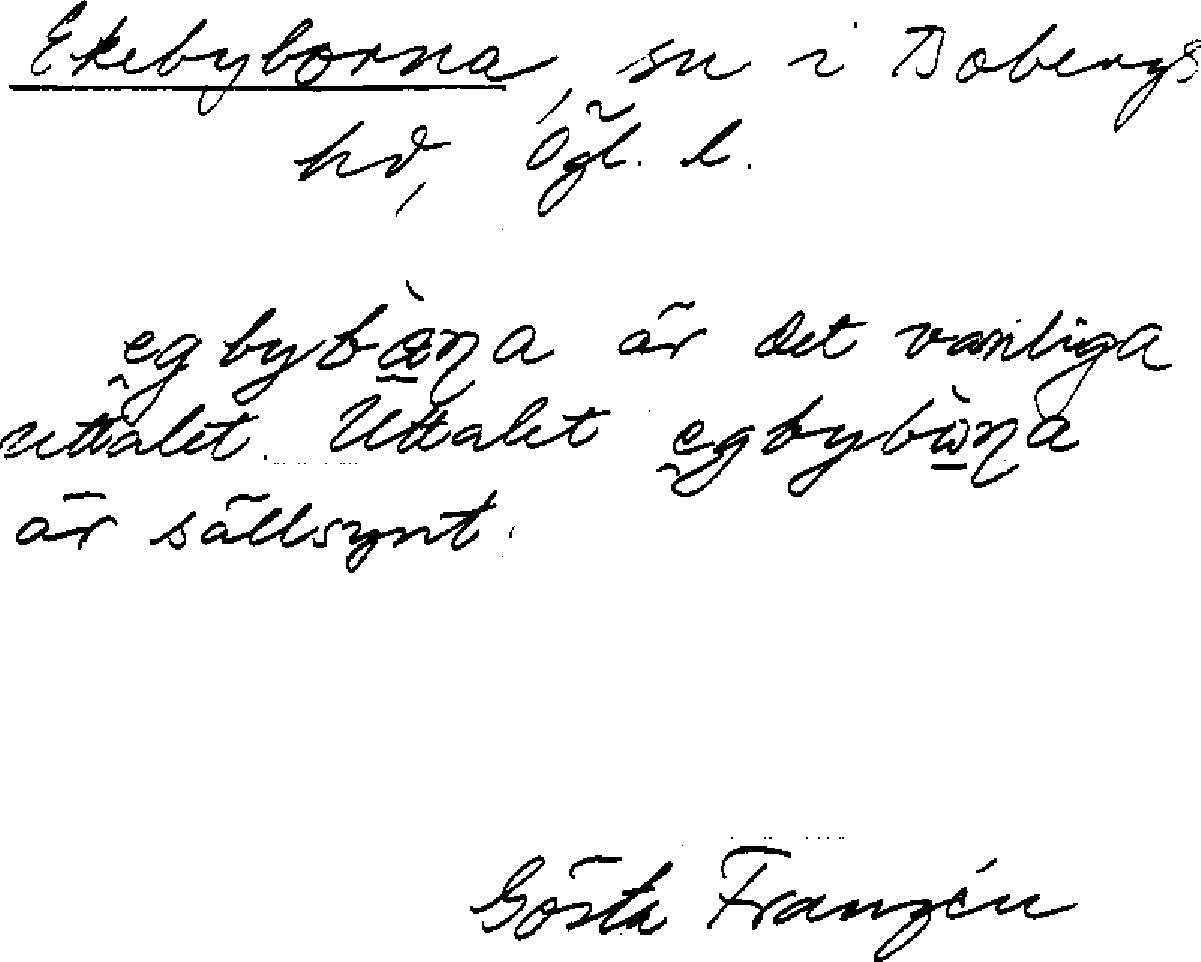 Ekebyborna, sn i Bobergs
hd, Ögl. l.
är det vanliga
uttalet. Uttalet
är sällsynt.
Gösta Franzén